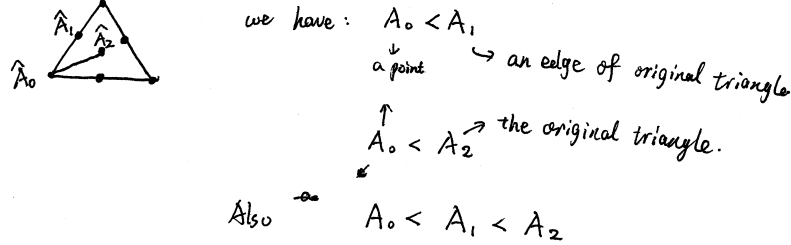 Â₁
Â₂
Â₀
we have: A₀ < A₁
a point
an edge of original triangle
A₀ < A₂
the original triangle.
Also A₀ < A₁ < A₂